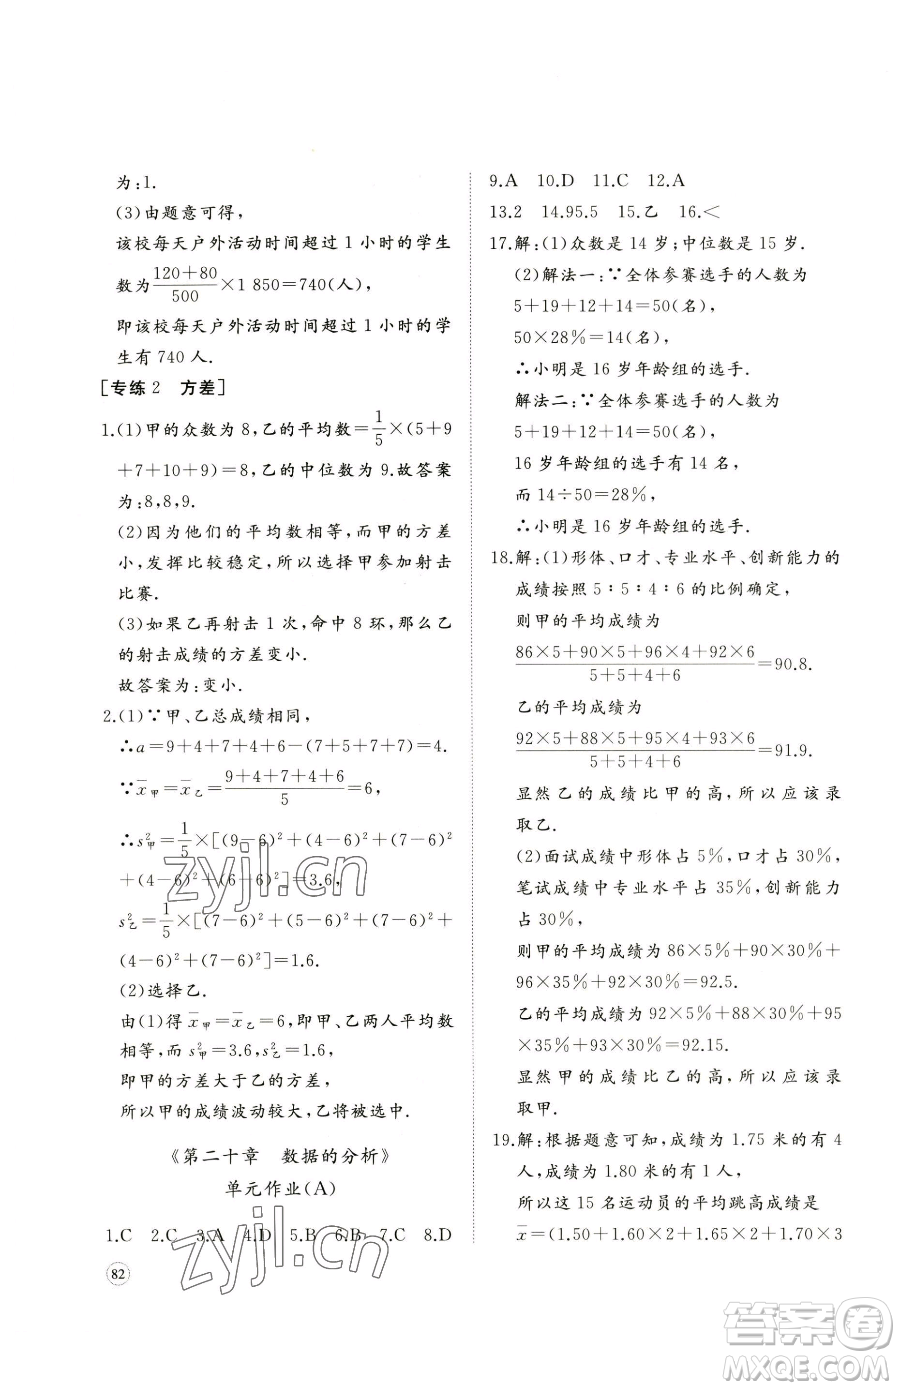 为:1.
(3)由题意可得,
该校每天户外活动时间超过 1 小时的学生
数为\frac{120+80}{500}×1 850=740(人),
即该校每天户外活动时间超过 1 小时的学
生有 740 人.
[专练 2 方差]
1.(1)甲的众数为 8,乙的平均数=\frac{1}{5}×(5+9
+7+10+9)=8,乙的中位数为 9.故答案
为:8,8,9.
(2)因为他们的平均数相等,而甲的方差
小,发挥比较稳定,所以选择甲参加射击
比赛.
(3)如果乙再射击 1 次,命中 8 环,那么乙
的射击成绩的方差变小.
故答案为:变小.
2.(1)∵甲、乙总成绩相同,
∴a=9+4+7+4+6-(7+5+7+7)=4.
∵\overline{x}甲=\overline{x}乙=\frac{9+4+7+4+6}{5}=6,
∴s²甲=\frac{1}{5}×[(9-6)²+(4-6)²+(7-6)²
+(4-6)²+(6-6)²]=3.6,
s²乙=\frac{1}{5}×[(7-6)²+(5-6)²+(7-6)²+
(4-6)²+(7-6)²]=1.6.
(2)选择乙.
由(1)得\overline{x}甲=\overline{x}乙=6,即甲、乙两人平均数
相等,而 s²甲=3.6,s²乙=1.6,
即甲的方差大于乙的方差,
所以甲的成绩波动较大,乙将被选中.
《第二十章 数据的分析》
单元作业(A)
1.C 2.C 3.A 4.D 5.B 6.B 7.C 8.D
82
9.A 10.D 11.C 12.A
13.2 14.95.5 15.乙 16.<
17.解:(1)众数是 14 岁;中位数是 15 岁.
(2)解法一:∵全体参赛选手的人数为
5+19+12+14=50(名),
50×28%=14(名),
∴小明是 16 岁年龄组的选手.
解法二:∵全体参赛选手的人数为
5+19+12+14=50(名),
16 岁年龄组的选手有 14 名,
而 14÷50=28%,
∴小明是 16 岁年龄组的选手.
18.解:(1)形体、口才、专业水平、创新能力的
成绩按照 5∶5∶4∶6 的比例确定,
则甲的平均成绩为
\frac{86×5+90×5+96×4+92×6}{5+5+4+6}=90.8.
乙的平均成绩为
\frac{92×5+88×5+95×4+93×6}{5+5+4+6}=91.9.
显然乙的成绩比甲的高,所以应该录
取乙.
(2)面试成绩中形体占 5%,口才占 30%,
笔试成绩中专业水平占 35%,创新能力
占 30%,
则甲的平均成绩为 86×5%+90×30%+
96×35%+92×30%=92.5.
乙的平均成绩为 92×5%+88×30%+95
×35%+93×30%=92.15.
显然甲的成绩比乙的高,所以应该录
取甲.
19.解:根据题意可知,成绩为 1.75 米的有 4
人,成绩为 1.80 米的有 1 人,
所以这 15 名运动员的平均跳高成绩是
\overline{x}=(1.50+1.60×2+1.65×2+1.70×3
zyjl.cn
zyjl.cn
答案圈
MXQE.COM